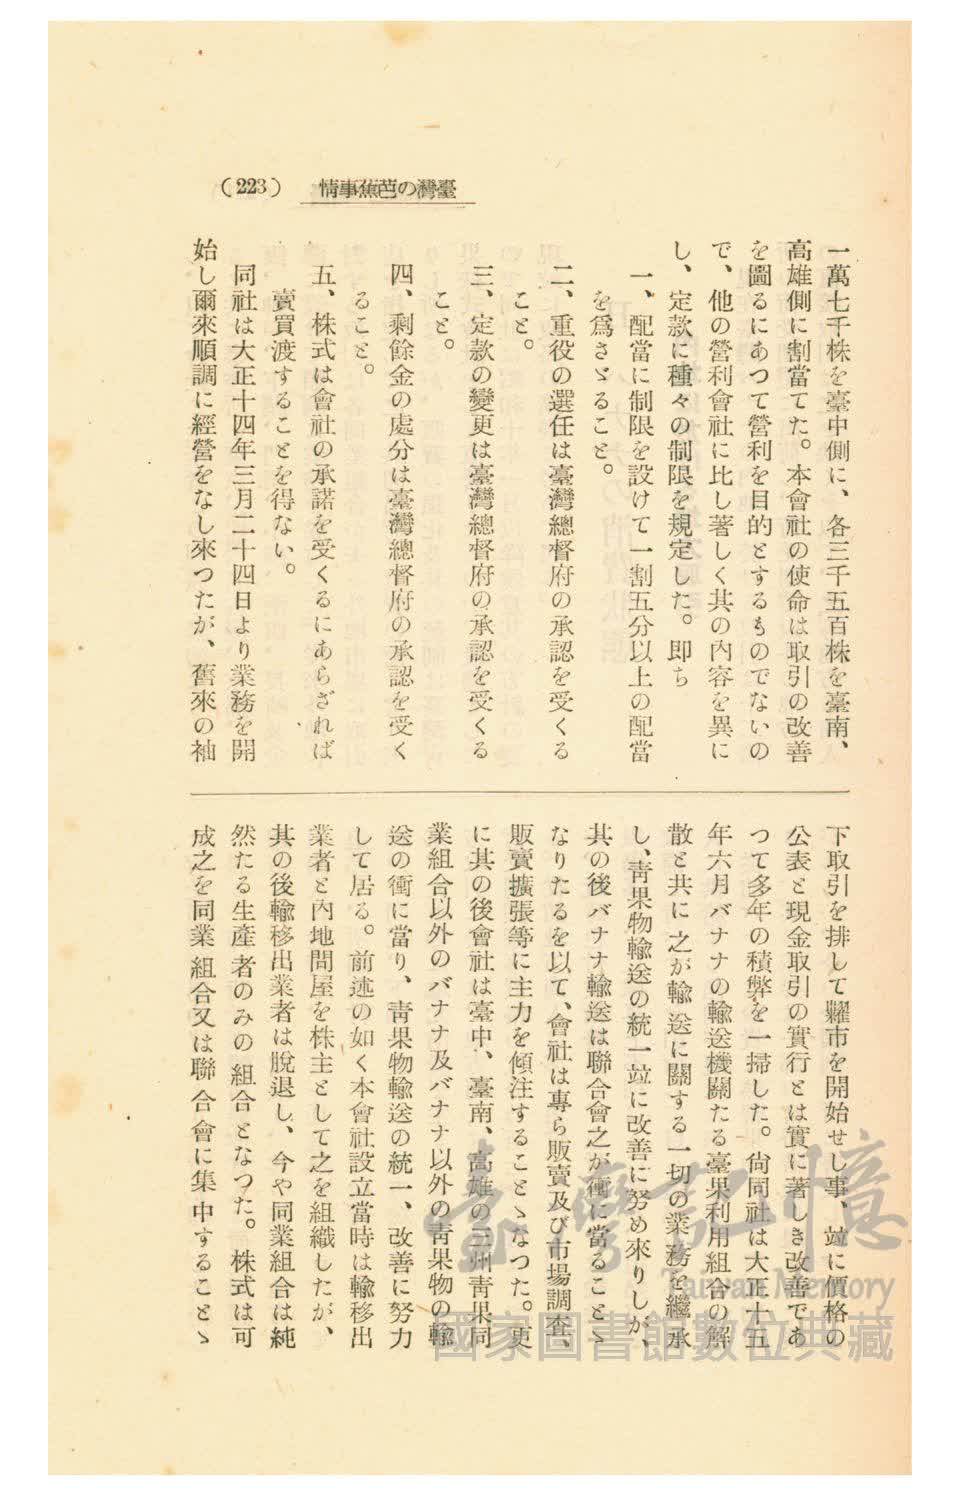 情事蕉芭の灣臺
(223)
一萬七千株を臺中側に、各三千五百株を臺南、
高雄側に割當てた。本會社の使命は取引の改善
を圖るにあつて營利を目的とするものでないの
で、他の營利會社に比し著しく其の内容を異に
し、定款に種々の制限を規定した。即ち
一、配當に制限を設けて一割五分以上の配當
を爲さゞること。
二、重役の選任は臺灣總督府の承認を受くる
こと。
三、定款の變更は臺灣總督府の承認を受くる
こと。
四、剩餘金の處分は臺灣總督府の承認を受く
ること。
五、株式は會社の承諾を受くるにあらざれば
賣買渡することを得ない。
同社は大正十四年三月二十四日より業務を開
始し爾來順調に經營をなし來つたが、舊來の袖
下取引を排して糶市を開始せし事、竝に價格の
公表と現金取引の實行とは實に著しき改善であ
つて多年の積弊を一掃した。尙同社は大正十五
年六月バナナの輸送機關たる臺果利用組合の解
散と共に之が輸送に關する一切の業務を繼承
し、靑果物輸送の統一竝に改善に努め來りしが、
其の後バナナ輸送は聯合會之が衝に當ることゝ
なりたるを以て、會社は專ら販賣及び市場調査、
販賣擴張等に主力を傾注することゝなつた。更
に其の後會社は臺中、臺南、高雄の三州靑果同
業組合以外のバナナ及バナナ以外の靑果物の輸
送の衝に當り、靑果物輸送の統一、改善に努力
して居る。前述の如く本會社設立當時は輸移出
業者と内地問屋を株主として之を組織したが、
其の後輸移出業者は脫退し、今や同業組合は純
然たる生產者のみの組合となつた。株式は可
成之を同業組合又は聯合會に集中することゝ
臺灣記憶
Taiwan Memory
國家圖書館數位典藏